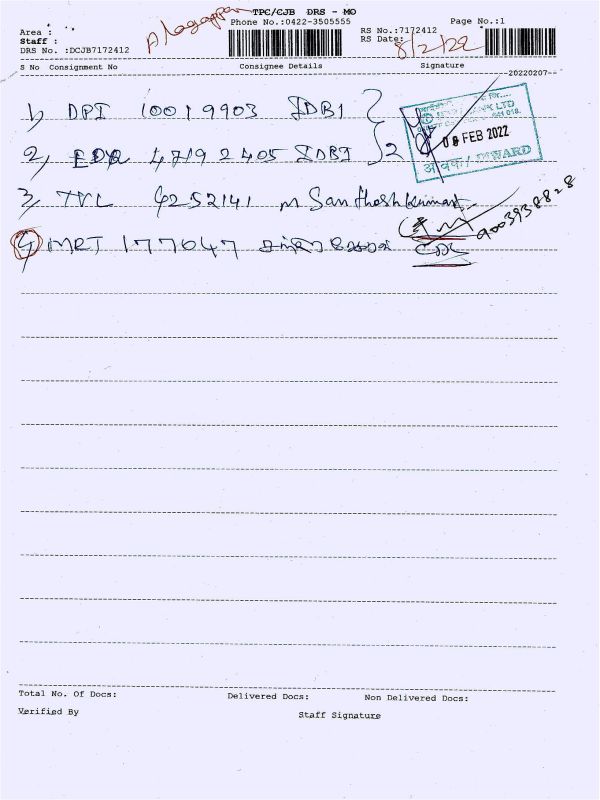 TPC/CJB DRS - MO
Alagappan
Phone No.:0422-3505555
Page No.:1
Area :
RS No.:7172412
Staff :
RS Date:
8/2/22
DRS No. :DCJB7172412
S No Consignment No Consignee Details Signature
20220207
1) DPI 10019903 IDBI
2) 47192405 IDBI } 2
BANK LTD
08 FEB 2022
INWARD
3) TVL 4252141 M Santhosh kumar
9003938828
4) MRT 177047
Total No. Of Docs: Delivered Docs: Non Delivered Docs:
Verified By Staff Signature